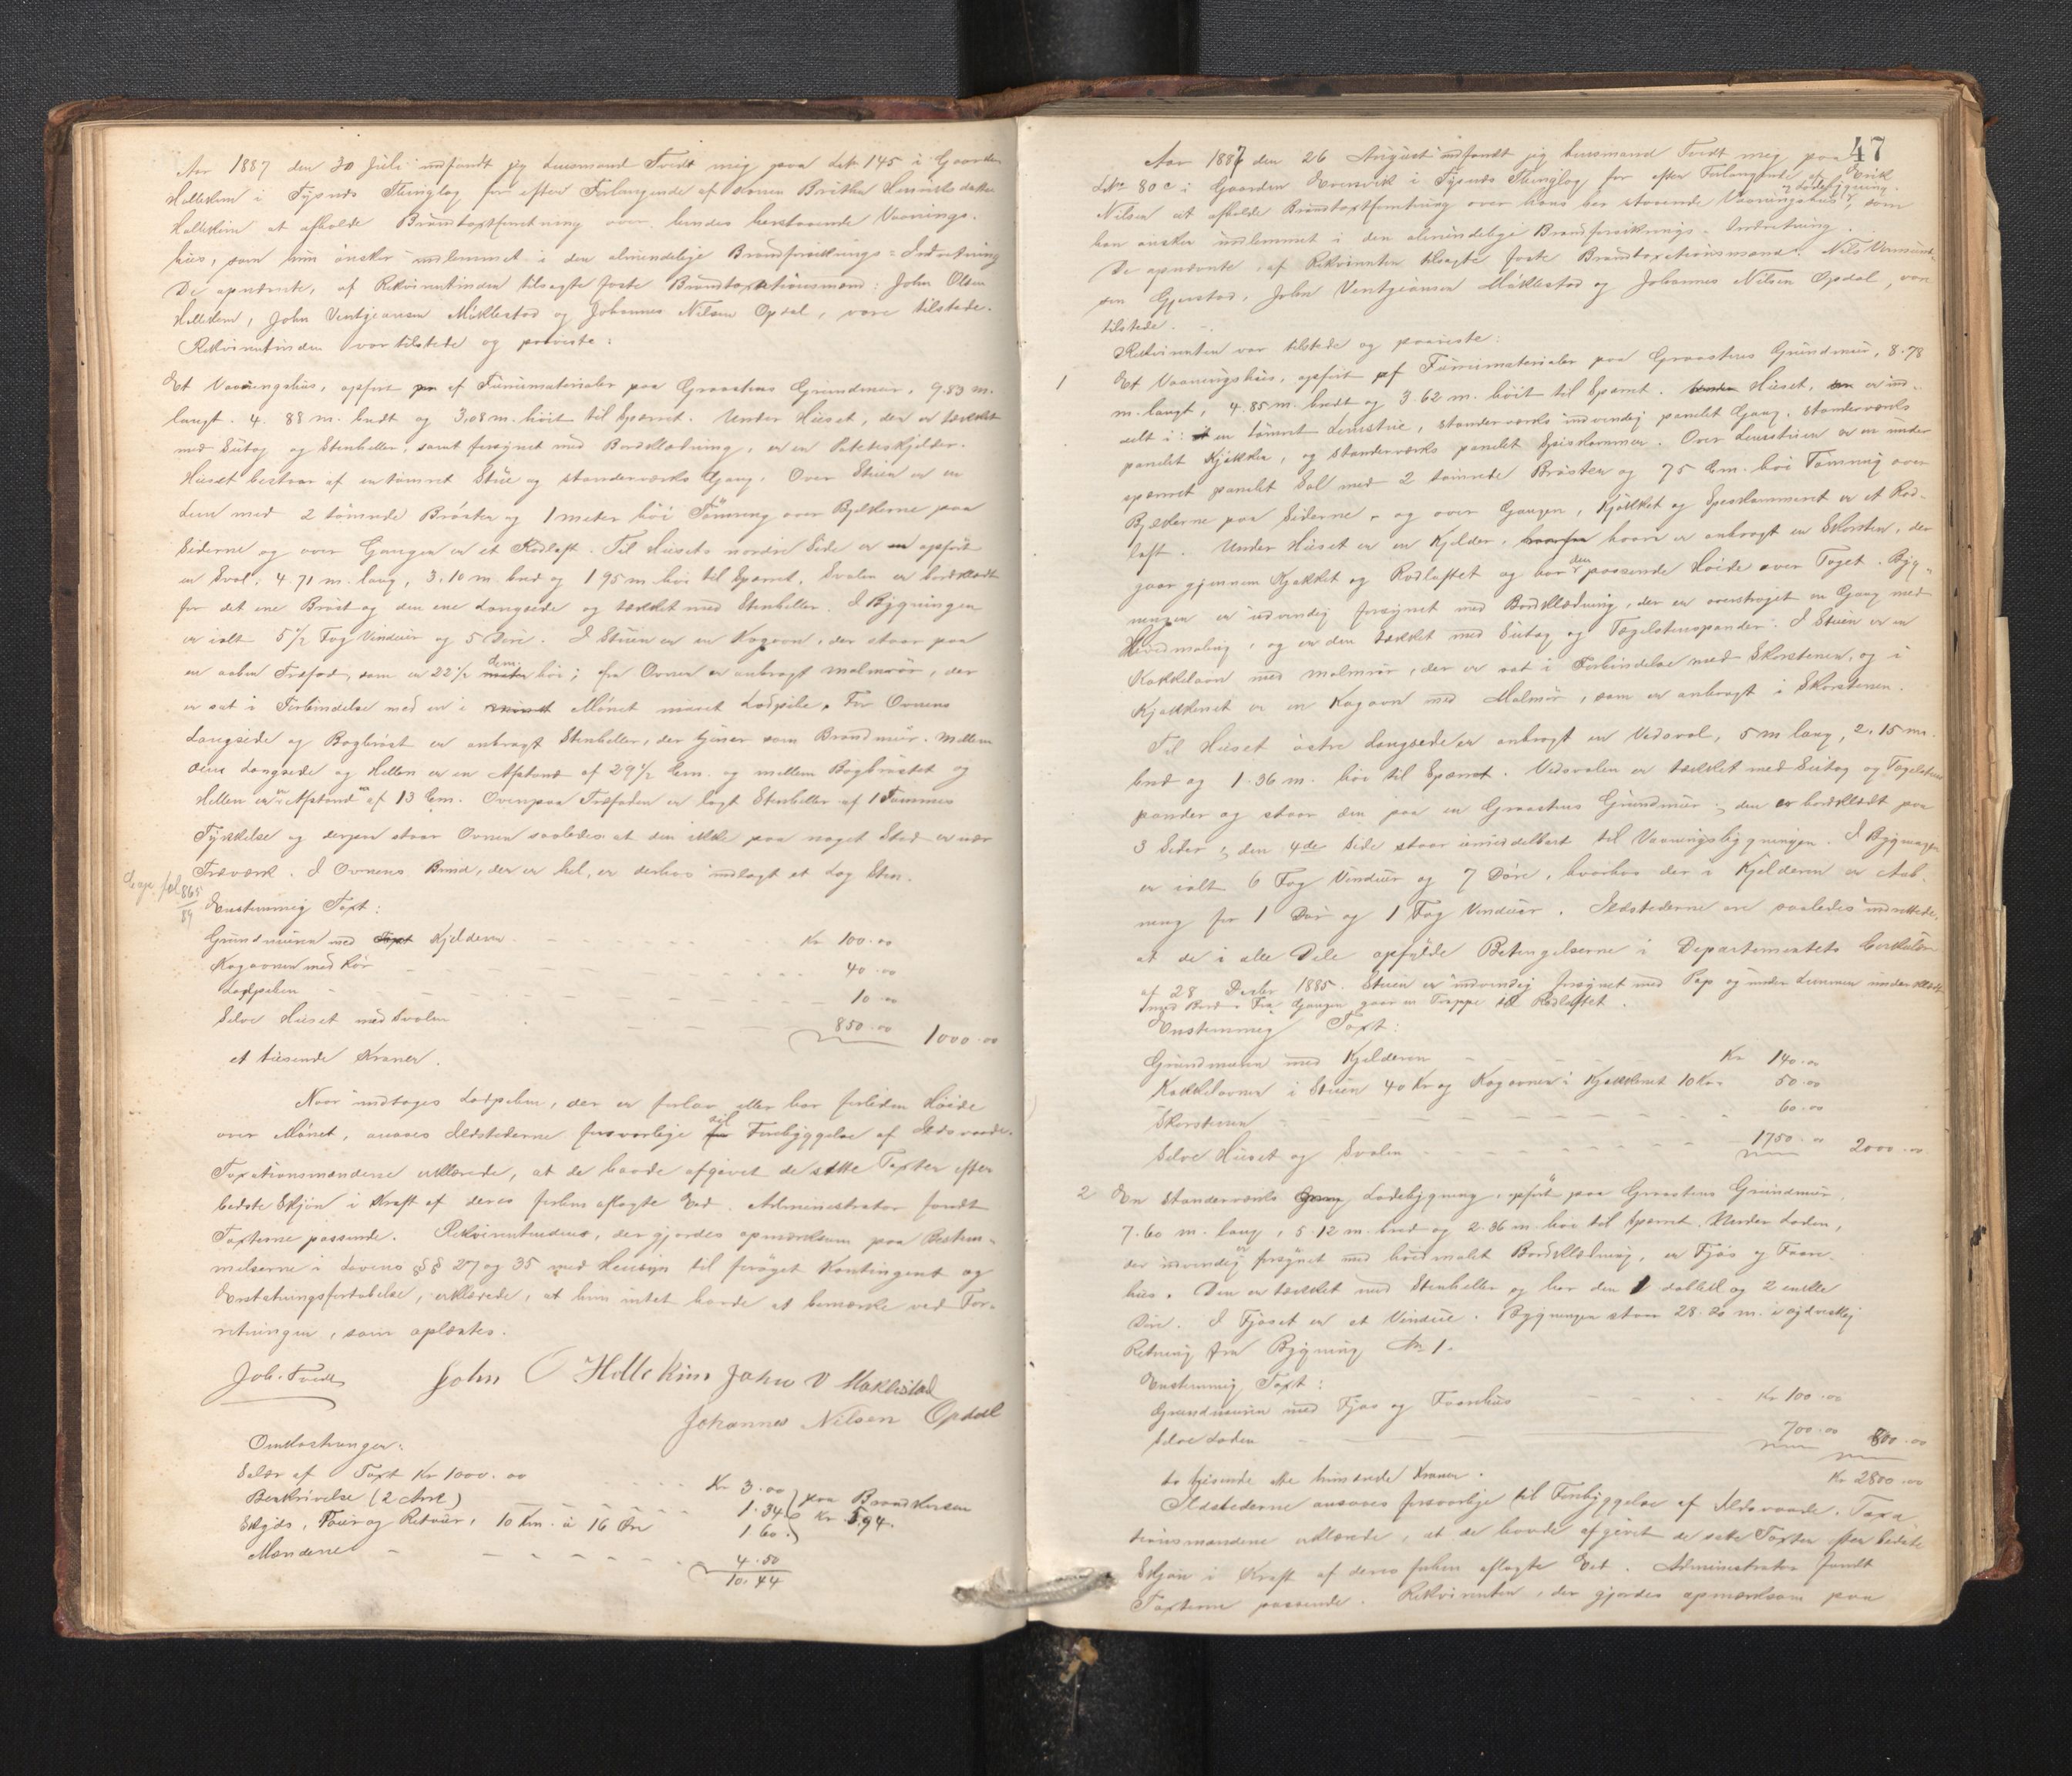 Aar 1887 den 30 Juli indfandt jeg Lensmand Tvedt mig paa Løbn 145 i Gaarden
Hallekim i Tysnæs Thinglag for efter Forlangende af Konen Britha Henriksdatter
Hallekim at afholde Brandtaxtforretning over hendes herstaaende Vaanings-
hus, som hun ønsker indlemmet i den almindelige Brandforsikrings-Indretning
De opnævnte, af Rekvirentinden tilsagte faste Brandtaxationsmænd: John Olsen
Hallekim, John Ventzeansen Møklestad og Johannes Nilsen Opdal, vare tilstede.
Rekvirentinden var tilstede og paaviste:
Et Vaaningshus, opført paa af Furumaterialer paa Graastens Grundmur, 9.83 m.
langt, 4.88 m. bredt og 3,08 m. høit til Spærret. Under Huset, der er tækket
med Sutag og Stenheller, samt forsynet med Bordklædning, er en Poteteskjelder.
Huset bestaar af en tømret Stue og standerværks Gang. Over Stuen er en
Lem med 2 tømrede Brøster og 1 meter høi Tømring over Bjelkerne paa
Siderne og over Gangen er et Rodloft. Til Husets nordre Side er en opført
en Sval, 4.71 m. lang, 3.10 m. bred og 1 95 m. høi til Spærret. Svalen er bordklædt
for det ene Brøst og den ene Langside og tækket med Stenheller. I Bygningen
er ialt 5 1/2 Fag Vinduer og 5 Døre. I Stuen er en Kogovn, der staar paa
en aaben Træfod, som er 22 1/2 meter cm. høi; fra Ovnen er anbragt Malmrør, der
er sat i Forbindelse med en i Mønet muret Lodpibe. For Ovnens
Langside og Bagbrøst er anbragt Stenheller, der tjener som Brandmur. Mellem
Langside og Hellen er en Afstand af 29 1/2 Cm. og mellem Bagbrøstet og
Hellen er en Afstand af 13 Cm. Ovenpaa Træfoden er lagt Stenheller af 1 Tommes
Tykkelse og derpaa staar Ovnen saaledes at den ikke paa noget Sted er nær
Træværk. I Ovnens Bund, der er hel, er derhos indlagt et Lag Sten.
865
89
Enstemmig Taxt:
Grundmuren med Taxt Kjelderen Kr 100.00
Kogovnen med Rør 40.00
Lodpiben 10.00
Selve Huset med Svalen 850.00 1000.00
et tusende Kroner.
Naar undtages Lodpiben, der er forlav eller har forliden Høide
over Mønet, ansaaes Ildstederne forsvarlige for til Forebyggelse af Ildsvaade.
Taxationsmændene erklærede, at de havde afgivet de satte Taxter efter
bedste Skjøn i Kraft af deres forhen aflagte Ed. Administrator fandt
Taxterne passende. Rekvirentinden, der gjordes opmærksom paa Bestem-
melserne i Lovens §§ 27 og 35 med Hensyn til forøget Kontingent og
Erstatningsfortabelse, erklærede, at hun intet havde at bemærke ved For-
retningen, som oplæstes.
Joh. Tvedt John O Hallekim John V Møklestad
Johannes Nilsen Opdal
Omkostninger:
Salær af Taxt Kr 1000.00 Kr 3.00
Beskrivelse (2 Ark) 1.34 paa Brandkassen
Skyds, Tour og Retour, 10 Km. à 16 Øre 1.60 Kr 5,94.
Mændene 4.50
10.44
47
Aar 1887 den 26 August indfandt jeg Lensmand Tvedt mig paa
Løbn 80 c i Gaarden Evensvik i Tysnæs Thinglag for efter Forlangende af Erik
Nilsen at afholde Brandtaxtforretning over hans her staaende Vaaningshus og Ladebygning, som
han ønsker indlemmet i den almindelige Brandforsikrings-Indretning.
De opnævnte, af Rekvirenten tilsagte faste Brandtaxationsmænd: Nils
sen Gjerstad, John Ventzeansen Møklestad og Johannes Nilsen Opdal, vare
tilstede.
Rekvirenten var tilstede og paaviste:
1 Et Vaaningshus, opført af Furumaterialer paa Graastens Grundmur, 8.78
m. langt, 4.85 m. bredt og 3.62 m. høit til Spærret. Under Huset, er ind-
delt i: en tømret Lemstue, standerværks indvendig panelet Gang, standerværks
panelet Kjøkken, og standerværks panelet Spiskammer. Over Lemstuen er en under
spærret panelet Sal med 2 tømrede Brøster og 75 Cm. høi Tømring over
Bjelkerne paa Siderne, og over Gangen, Kjøkket og Speskammeret er et Rod-
loft. Under Huset er en Kjelder, hvori er anbragt en Skorsten, der
gaar gjennem Kjøkket og Rodloftet og har den passende Høide over Taget. Byg-
ningen er udvendig forsynet med Bordklædning, der er overstrøget en Gang med
Hvidmaling, og er den tækket med Sutag og Tagelstenspander. I Stuen er en
Kakkelovn med malmrør, der er sat i Forbindelse med Skorstenen, og i
Kjøkkenet er en Kogovn med Malmrør, som er anbragt i Skorstenen.
Til Huset østre Langside er anbragt en Vedsval, 5 m lang, 2.15 m.
bred og 1.36 m. høi til Spærret. Vedsvalen er tækket med Sutag og Tagelstens
pander og staar den paa en Graastens Grundmur; den er bordklædt paa
3 Sider; den 4de Side staar umiddelbart til Vaaningsbygningen. I Bygningen
er ialt 6 Fag Vinduer og 7 Døre, hvorhos der i Kjelderen er Aab-
ning for 1 Dør og 1 Fag Vinduer. Ildstederne ere saaledes indrettede,
at de i alle Dele opfylde Betingelserne i Departementets Cirkulære
af 28 Decbr 1885. Stuen er indvendig forsynet med Pap og under Lemmen underklædt
med Bord. Fra Gangen gaar en Trappe til Rodloftet.
Enstemmig Taxt:
Grundmuren med Kjelderen Kr 140.00
Kakkelovnen i Stuen 40 Kr og Kogovnen i Kjøkkenet 10 Kr 50.00
Skorstenen 60.00
Selve Huset og Svalen 1750.00 2000.00
2 En Standerværks Ladebygning, opført paa Graastens Grundmur,
7.60 m. lang, 5.12 m. bred og 2.36 m. høi til Spærret. Under Laden,
der udvendig er forsynet med hvidmalet Bordklædning, er Fjøs og Faare-
hus. Den er tækket med Stenheller og har den 1 dobbelt og 2 enkelte
Døre. I Fjøset er et Vindue. Bygningen staar 28.20 m. i sydvestlig
Retning fra Bygning No 1.
Enstemmig Taxt:
Grundmuren med Fjøs og Faarehus Kr 100.00
Selve Laden 700.00 800.00
Kr 2800.00
to tusende otte hundrede Kroner.
Ildstederne ansaaes forsvarlige til Forebyggelse af Ildsvaade. Taxa
tionsmændene erklærede, at de havde afgivet de satte Taxter efter bedste
Skjøn i Kraft af deres forhen aflagte Ed. Administrator fandt
Taxterne passende. Rekvirenten, der gjordes opmærksom paa